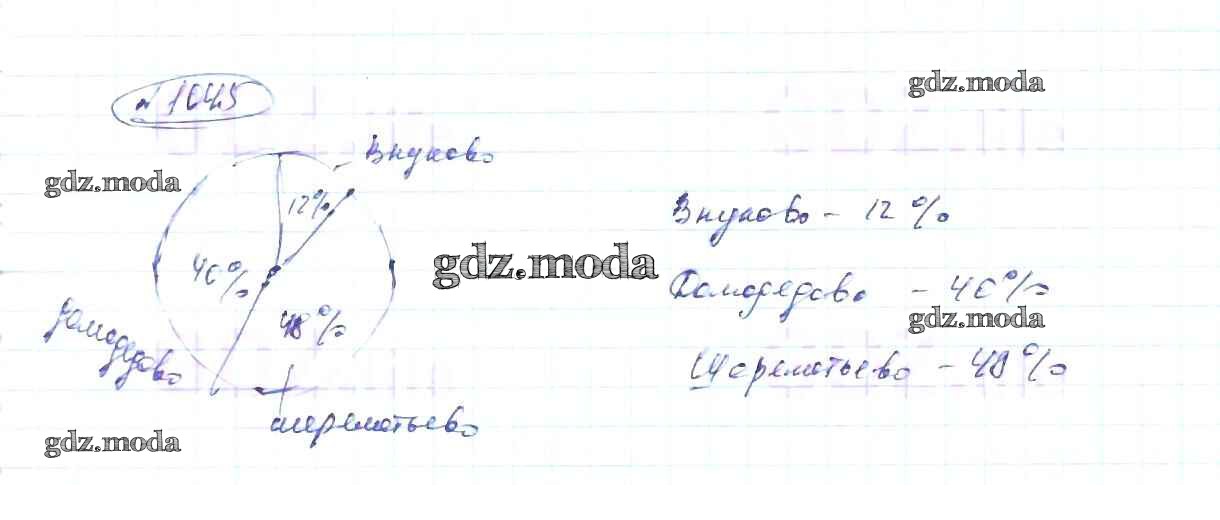 № 1045
gdz.moda
Внуково
gdz.moda
12%
Внуково - 12%
40%
gdz.moda
Домодедово - 40%
48%
gdz.moda
Домодедово
Шереметьево - 48%
Шереметьево
gdz.moda